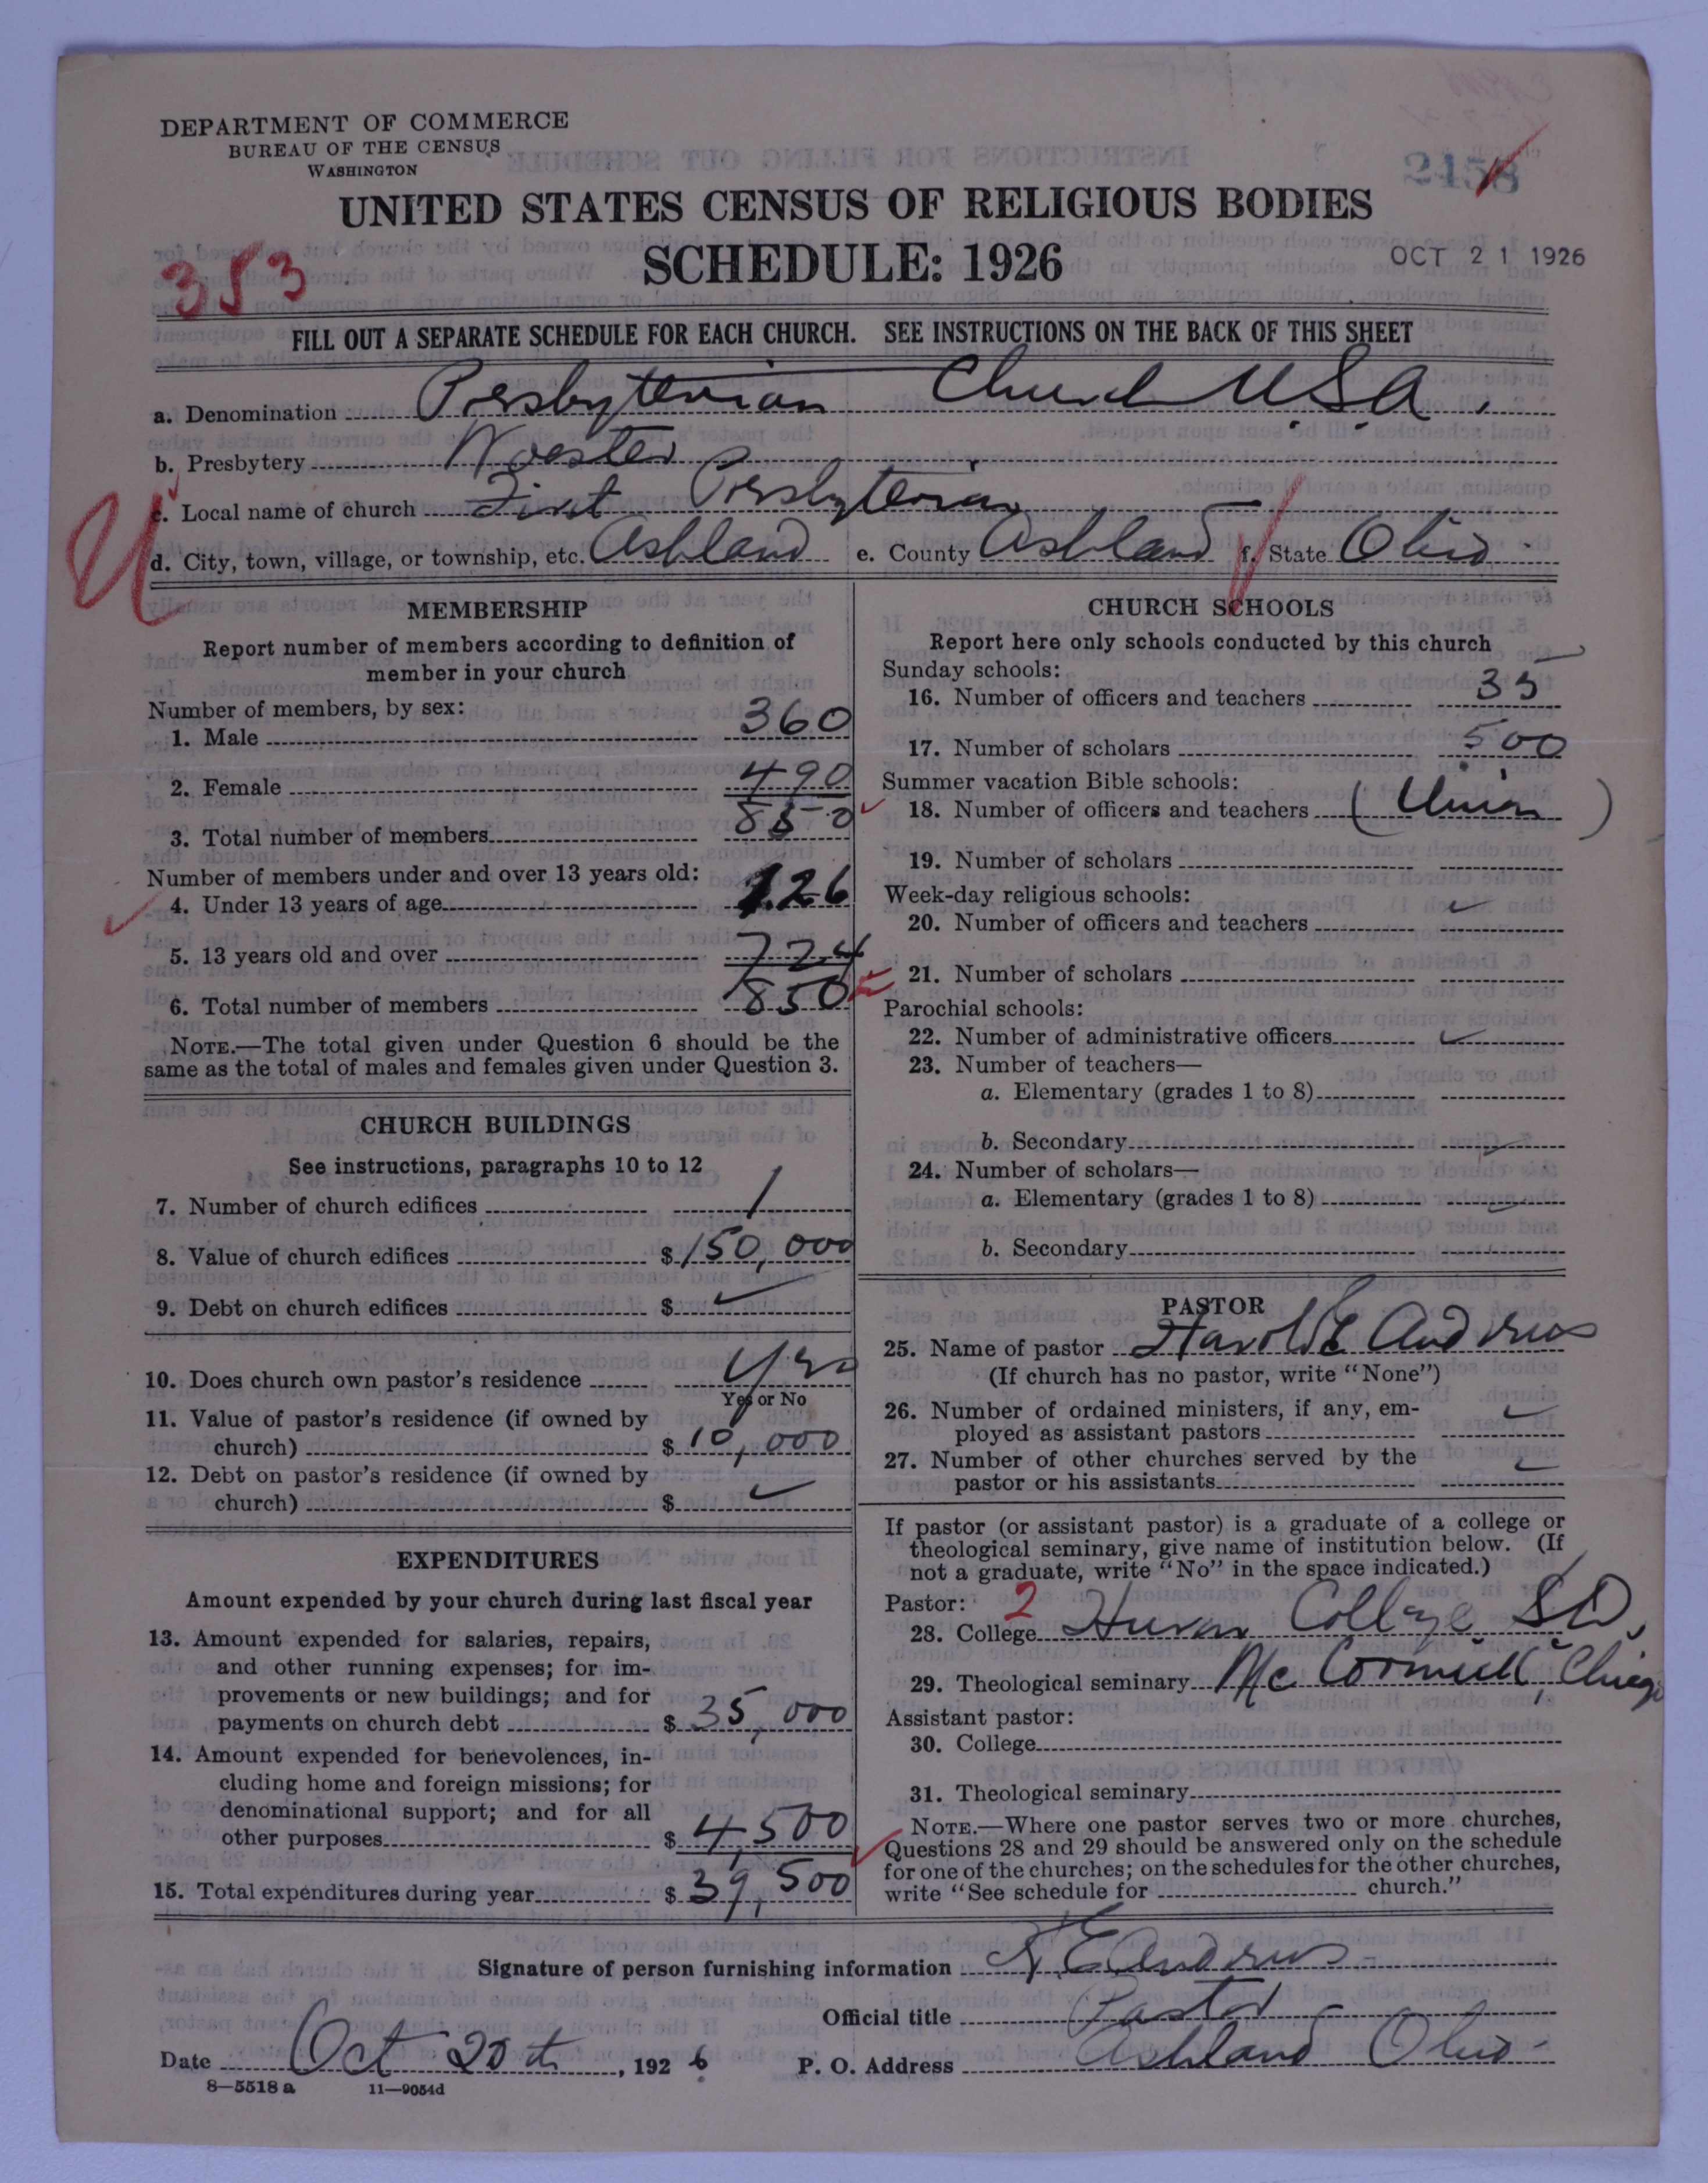 DEPARTMENT OF COMMERCE
BUREAU OF THE CENSUS
WASHINGTON
2458
UNITED STATES CENSUS OF RELIGIOUS BODIES
SCHEDULE: 1926
OCT 21 1926
353
FILL OUT A SEPARATE SCHEDULE FOR EACH CHURCH. SEE INSTRUCTIONS ON THE BACK OF THIS SHEET
a. Denomination Presbyterian Church U.S.A.
b. Presbytery Wooster
c. Local name of church First Presbyterian
U
d. City, town, village, or township, etc. Ashland e. County Ashland f. State Ohio
MEMBERSHIP
Report number of members according to definition of
member in your church
Number of members, by sex:
1. Male 360
2. Female 490
3. Total number of members 850
Number of members under and over 13 years old:
4. Under 13 years of age 126
5. 13 years old and over 724
6. Total number of members 850
NOTE.—The total given under Question 6 should be the
same as the total of males and females given under Question 3.
CHURCH BUILDINGS
See instructions, paragraphs 10 to 12
7. Number of church edifices 1
8. Value of church edifices $150,000
9. Debt on church edifices $ ✓
10. Does church own pastor's residence Yes
Yes or No
11. Value of pastor's residence (if owned by
church) $10,000
12. Debt on pastor's residence (if owned by
church) $ ✓
EXPENDITURES
Amount expended by your church during last fiscal year
13. Amount expended for salaries, repairs,
and other running expenses; for im-
provements or new buildings; and for
payments on church debt $35,000
14. Amount expended for benevolences, in-
cluding home and foreign missions; for
denominational support; and for all
other purposes $4,500
15. Total expenditures during year $39,500
CHURCH SCHOOLS
Report here only schools conducted by this church
Sunday schools:
16. Number of officers and teachers 35
17. Number of scholars 500
Summer vacation Bible schools:
18. Number of officers and teachers (Union)
19. Number of scholars
Week-day religious schools:
20. Number of officers and teachers ✓
21. Number of scholars
Parochial schools:
22. Number of administrative officers ✓
23. Number of teachers—
a. Elementary (grades 1 to 8)
b. Secondary ✓
24. Number of scholars—
a. Elementary (grades 1 to 8) ✓
b. Secondary
PASTOR
25. Name of pastor Harold E Andrews
(If church has no pastor, write "None")
26. Number of ordained ministers, if any, em-
ployed as assistant pastors ✓
27. Number of other churches served by the
pastor or his assistants ✓
If pastor (or assistant pastor) is a graduate of a college or
theological seminary, give name of institution below. (If
not a graduate, write "No" in the space indicated.)
Pastor: 2
28. College Huron College, S.D.
29. Theological seminary McCormick, Chicago
Assistant pastor:
30. College
31. Theological seminary
NOTE.—Where one pastor serves two or more churches,
Questions 28 and 29 should be answered only on the schedule
for one of the churches; on the schedules for the other churches,
write "See schedule for church."
Signature of person furnishing information H E Andrews
Official title Pastor
Date Oct 20th, 1926 P. O. Address Ashland Ohio
8—5518 a 11—9054d